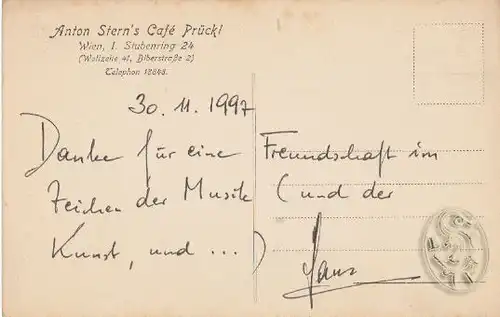 Anton Stern's Café Prückl
Wien, I. Stubenring 24
(Wollzeile 41, Biberstraße 2)
Telephon 12848.
30. 11. 1997
Danke für eine Freundschaft im
Zeichen der Musik (und der
Kunst, und ...)
Hans